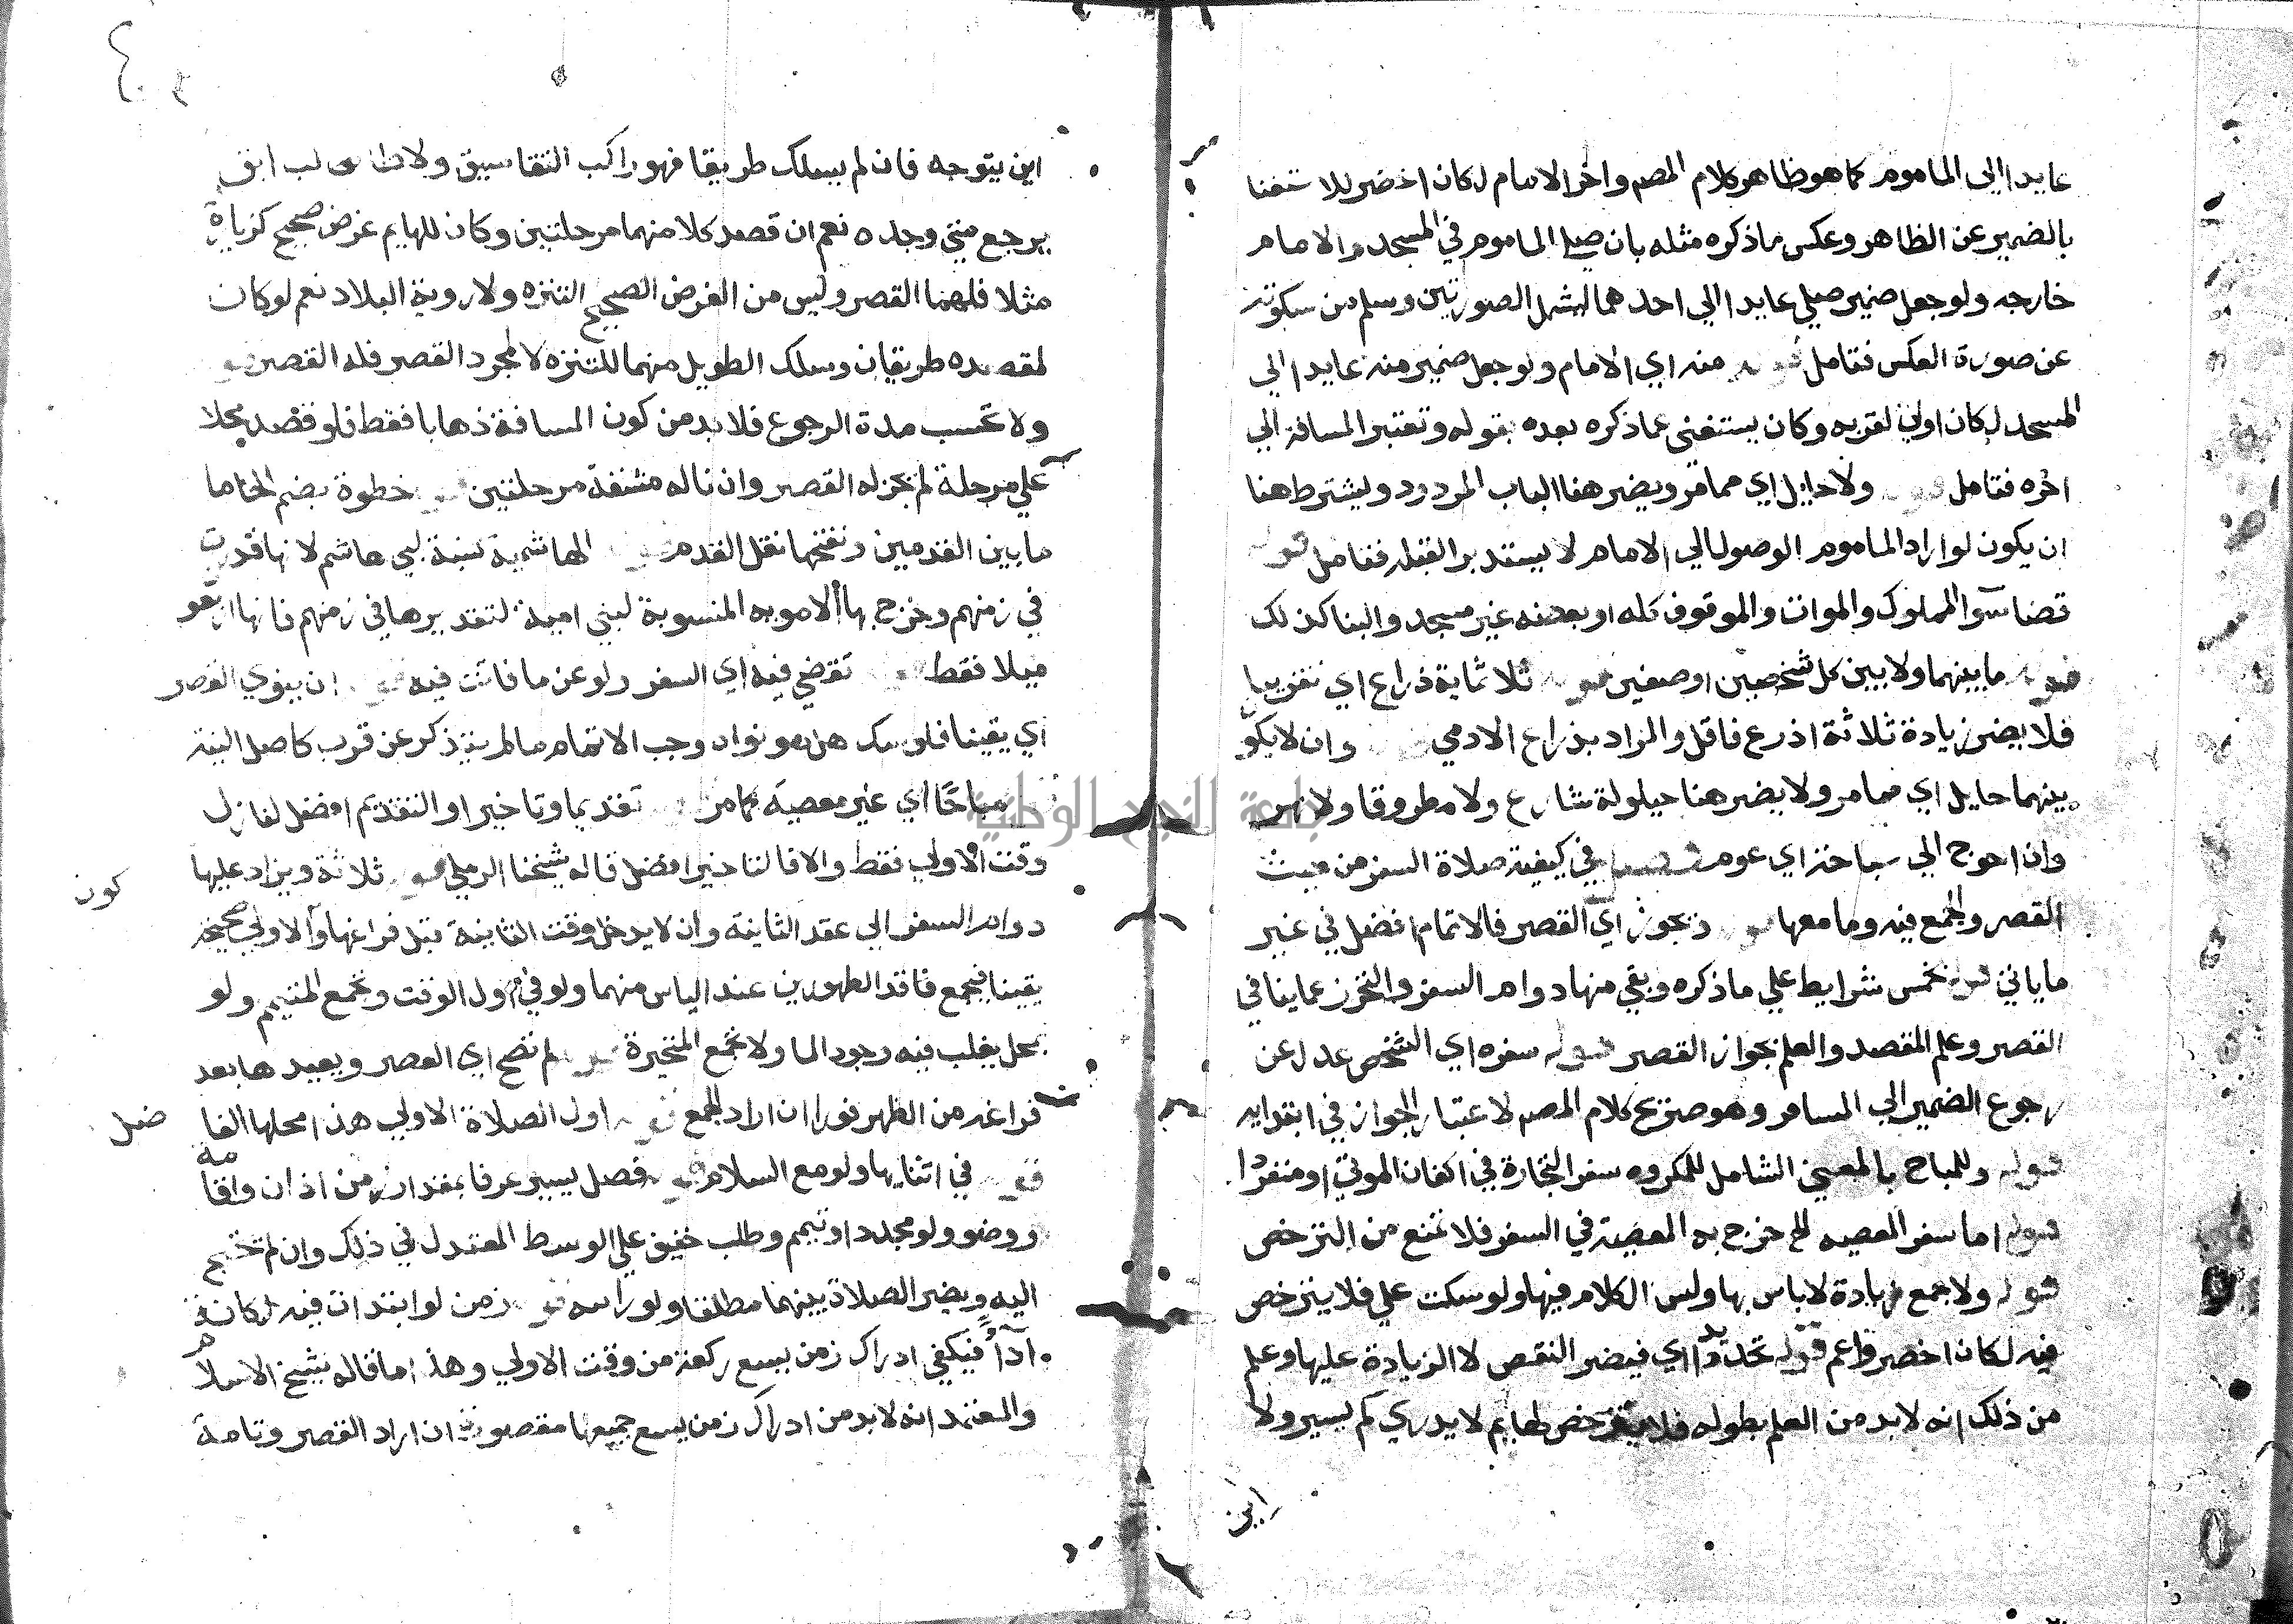 عايدا الي الماموم كما هو ظاهر كلام المصم واخر الامام لكان اخضر للاستغنا
بالضمير عن الظاهر وعكس ما ذكره مثله بان صلي الماموم في المسجد والامام
خارجه ولو جعل ضمير صلي عايدا الي احدهما لشمل الصورتين وسلم من سكوته
عن صورة العكس فتامل قوله منه اي الامام ولو جعل ضمير منه عايدا الي
المسجد لكان اولي لقربه وكان يستغني عما ذكره بعده بقوله وتعتبر المسافة الي
اخره فتامل قوله ولا حايل اي مما مر ويضر هنا الباب المردود ويشترط هنا
ان يكون لو اراد الماموم الوصول الي الامام لا يستدبر القبلة فتامل قوله
قضا سوا المملوك والموات والموقوف كله او بعضه غير مسجد والبنا كذلك
قوله ما بينهما ولا بين كل شخصين او صفين قوله ثلاثماية ذراع اي تقريبا
فلا يضر زيادة ثلاثة اذرع فاقل والمراد بذراع الادمي وان لا يكو
بينهما حايل اي مما مر ولا يضر هنا حيلولة شارع ولا مطروقا ولا نهر
وان احوج الي سباحة اي عوم فصل في كيفية صلاة السفر من حيث
القصر والجمع فيه وما معها قوله ويجوز اي القصر فالاتمام افضل في غير
ما ياتي قوله بخمس شرايط علي ما ذكره وبقي منها دوام السفر والتحرز عما ينافي
القصر وعلم المقصد والعلم بجواز القصر قوله سفره اي الشخص عدل عن
رجوع الضمير الي المسافر وهو صريح كلام المصم لاعتبار الجواز في ابتدايه
قوله وللمباح بالمعني الشامل للمكروه سفر التجارة في اكفان الموتي او منفردا
قوله اما سفر المعصيه الخ خرج به المعصية في السفر فلا تمنع من الترخص
قوله ولا جمع زيادة لا باس بها وليس الكلام فيها ولو سكت علي فلا يترخص
فيه لكان اخصر واعم قوله تحديدا اي فيضر النقص لا الزيادة عليها وعلم
من ذلك انه لا بد من العلم بطوله فلا يترخص هايم لا يدري كم يسير ولا
اين
اين يتوجه فان لم يسلك طريقا فهو راكب التقاسيق ولا طالب ابق
يرجع متي وجده نعم ان قصد كلا منهما مرحلتين وكان للهايم غرض صحيح كزيارة
مثلا فلهما القصر وليس من الغرض الصحيح التنزه ولا روية البلاد نعم لو كان
لمقصده طريقان وسلك الطويل منهما للتنزه لا لمجرد القصر فله القصر قوله
ولا تحسب مدة الرجوع فلا بد من كون المسافة ذهابا فقط فلو قصد محلا
علي مرحلة لم يجز له القصر وان ناله مشقة مرحلتين قوله خطوة بضم الخا ما
ما بين القدمين وبفتحها نقل القدم قوله الهاشمية نسبة لبني هاشم لانها قدرت
في زمنهم وخرج بها الامويه المنسوبة لبني امية لتقديرها في زمنهم فانها اربعو
ميلا فقط قوله تقضي فيه اي السفر ولو عن ما فاتت فيه قوله ان ينوي القصر
اي يقينا فلو شك هل هو نواه وجب الاتمام ما لم يتذكر عن قرب كاصل النية
مباحا اي غير معصية كما مر قوله تقديما وتاخيرا والتقديم افضل لنازل
وقت الاولي فقط والا فالتاخير افضل قاله شيخنا الرملي قوله ثلاثة ويزاد عليها
كون
دوام السفر الي عقد الثانية وان لا يدخل وقت الثانية قبل فراغها والاولي صحيحة
يقينا فيجمع فاقد الطهورين عند الياس منهما ولو في اول الوقت ويجمع المتيمم ولو
بمحل يغلب فيه وجود الما ولا تجمع المتحيرة قوله لم تصح اي العصر ويعيدها بعد
فراغه من الظهر فورا ان اراد الجمع قوله اول الصلاة الاولي هذا محلها الفا
ضل
قوله في اثنايها ولو مع السلام قوله فصل يسير عرفا بمقدار زمن اذان واقا
مة
ووضو ولو مجدد او تيمم وطلب خفيف علي الوسط المعتدل في ذلك وان لم تحتج
اليه ويضر الصلاة بينهما مطلقا ولو راتبه قوله زمن لو ابتدات فيه لكانت
ادآ فيكفي ادراك زمن يسع ركعة من وقت الاولي وهذا ما قاله شيخ الاسلام
والمعتمد انه لا بد من ادراك زمن يسع جميعها مقصورة ان اراد القصر وتامة
جامعة النجاح الوطنية